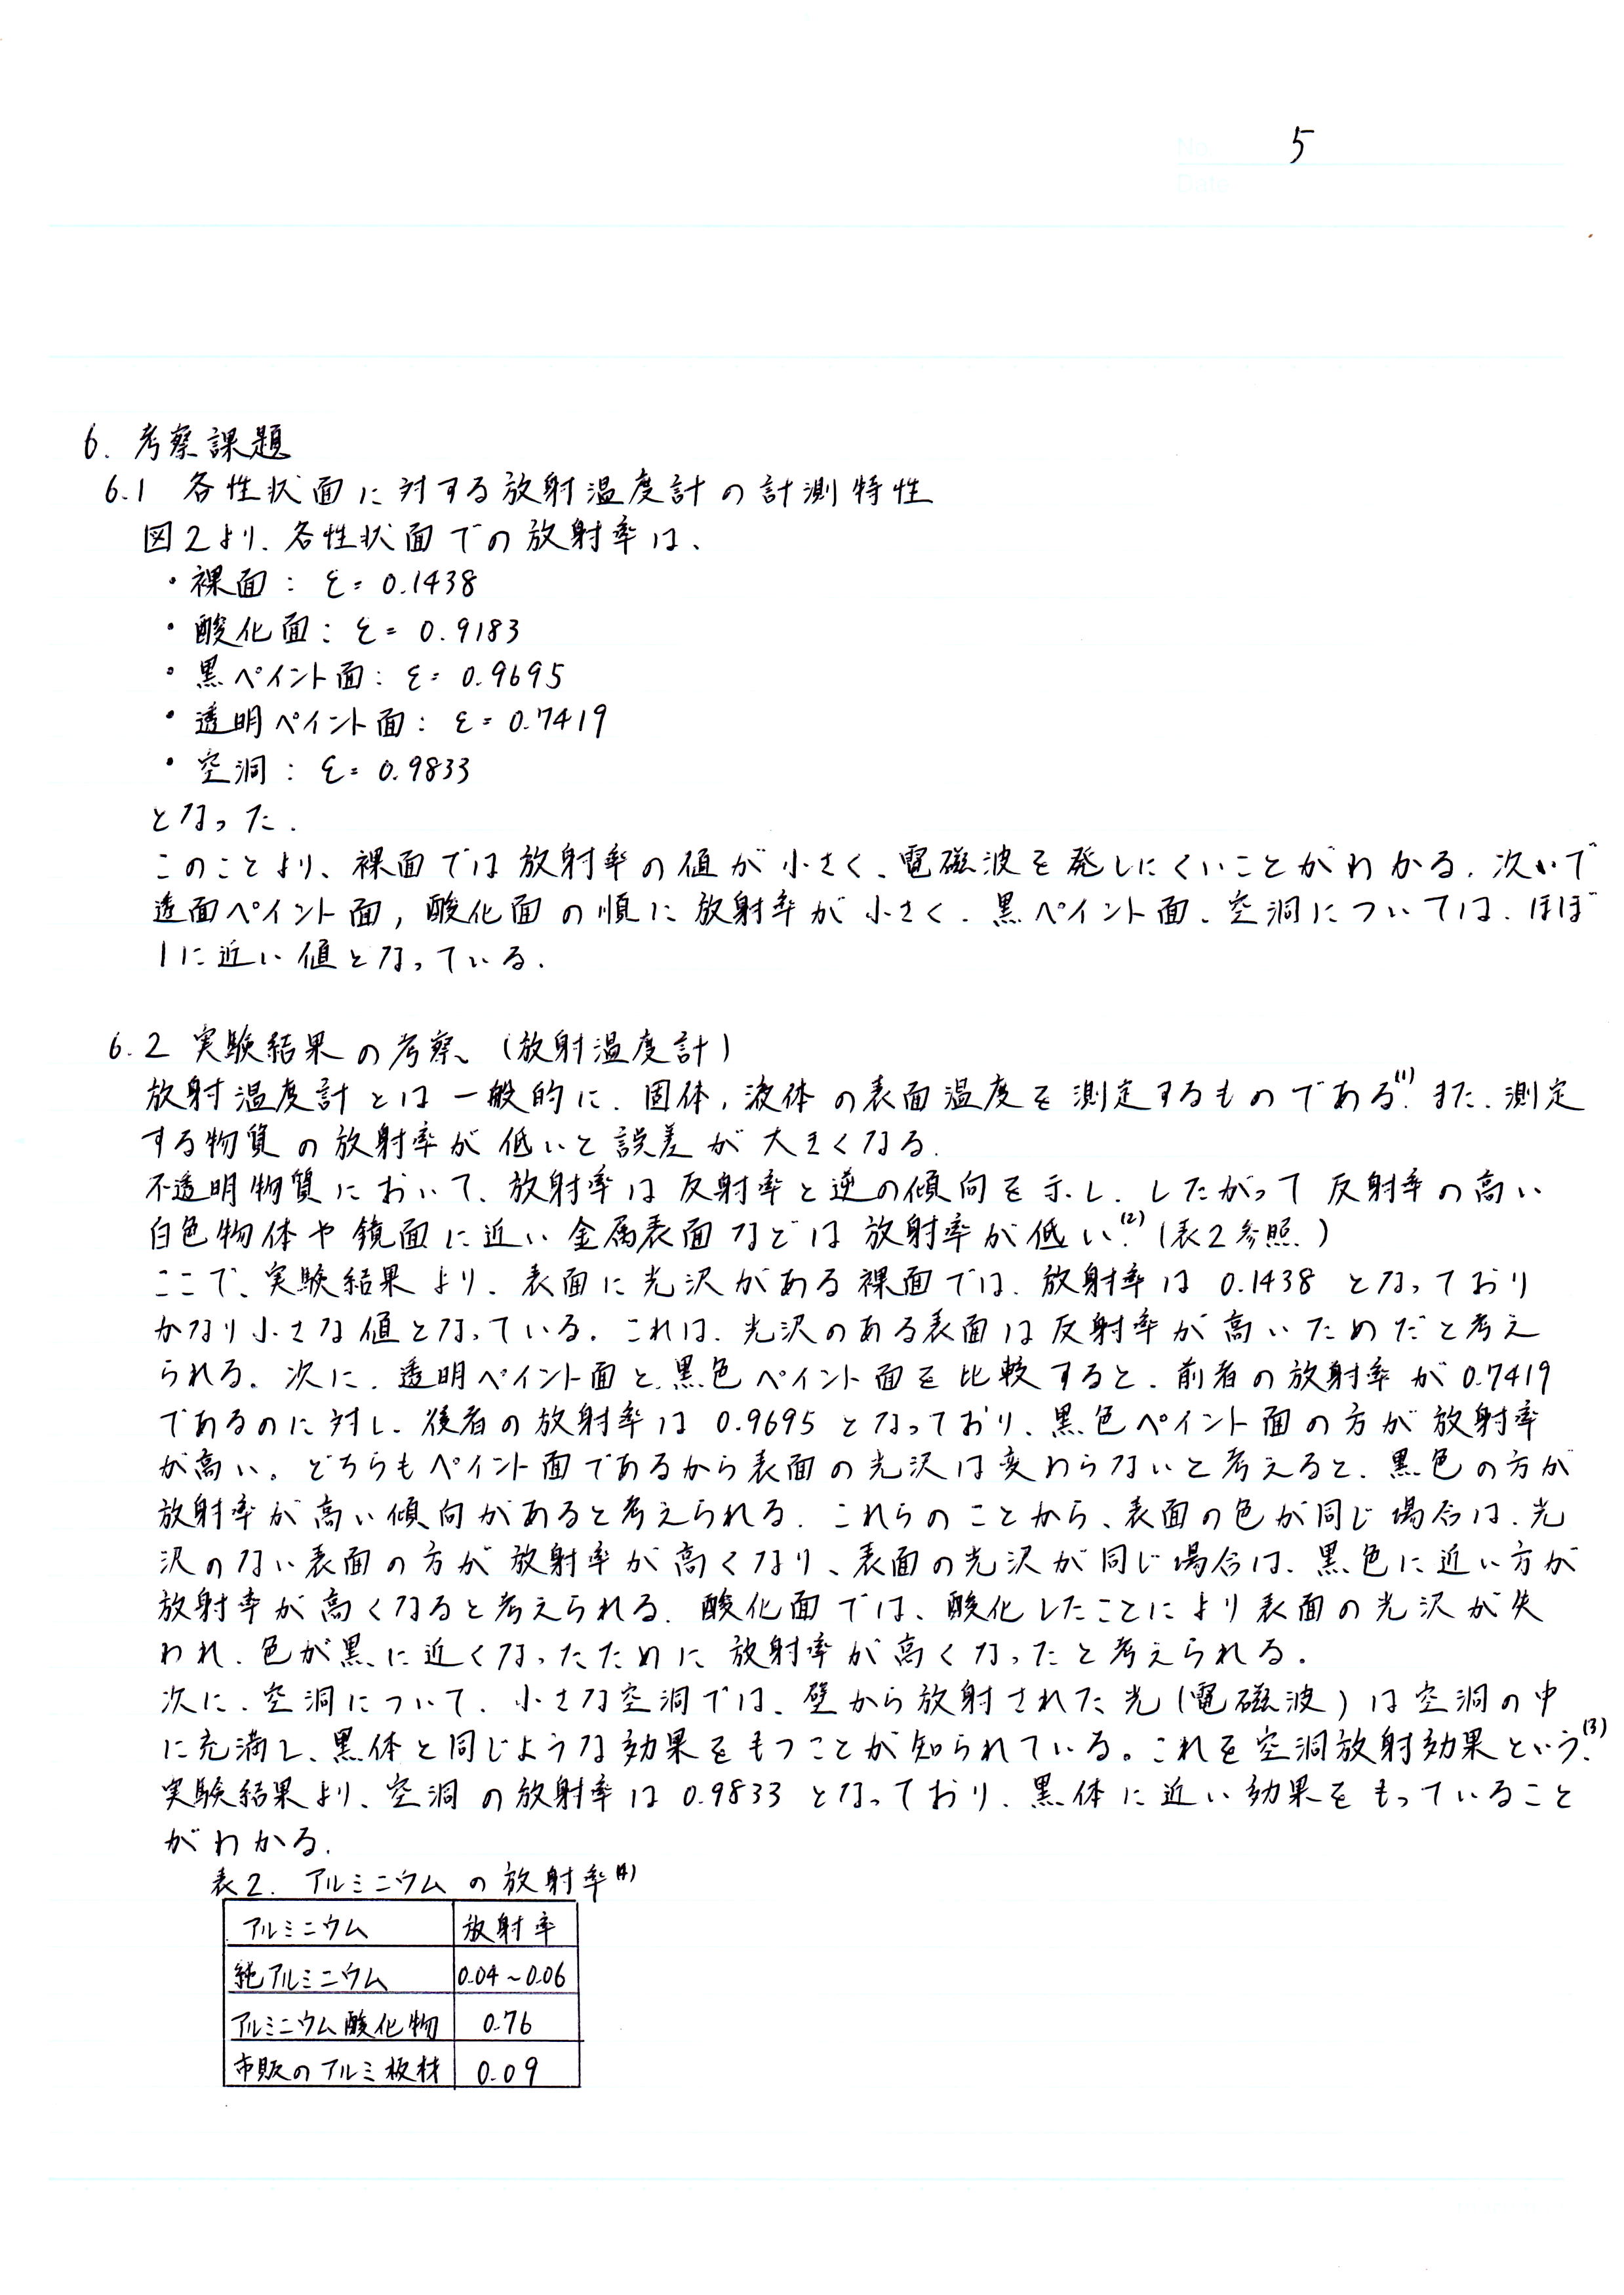 No. 5
Date
6. 考察課題
6.1 各性状面に対する放射温度計の計測特性
図2より、各性状面での放射率は、
・裸面: ε= 0.1438
・酸化面: ε= 0.9183
・黒ペイント面: ε= 0.9695
・透明ペイント面: ε= 0.7419
・空洞: ε= 0.9833
となった.
このことより、裸面では放射率の値が小さく、電磁波を発しにくいことがわかる. 次いで
透面ペイント面, 酸化面の順に放射率が小さく、黒ペイント面、空洞については、ほぼ
1に近い値となっている.
6.2 実験結果の考察 (放射温度計)
放射温度計とは一般的に、固体, 液体の表面温度を測定するものである.(1) また、測定
する物質の放射率が低いと誤差が大きくなる.
不透明物質において、放射率は反射率と逆の傾向を示し、したがって反射率の高い
白色物体や鏡面に近い金属表面などは放射率が低い.(2) (表2参照)
ここで、実験結果より、表面に光沢がある裸面では、放射率は0.1438となっており
かなり小さな値となっている. これは、光沢のある表面は反射率が高いためだと考え
られる. 次に、透明ペイント面と黒色ペイント面を比較すると、前者の放射率が0.7419
であるのに対し、後者の放射率は0.9695となっており、黒色ペイント面の方が放射率
が高い。どちらもペイント面であるから表面の光沢は変わらないと考えると、黒色の方が
放射率が高い傾向があると考えられる. これらのことから、表面の色が同じ場合は、光
沢のない表面の方が放射率が高くなり、表面の光沢が同じ場合は、黒色に近い方が
放射率が高くなると考えられる. 酸化面では、酸化したことにより表面の光沢が失
われ、色が黒に近くなったために放射率が高くなったと考えられる.
次に、空洞について、小さな空洞では、壁から放射された光(電磁波)は空洞の中
に充満し、黒体と同じような効果をもつことが知られている。これを空洞放射効果という.(3)
実験結果より、空洞の放射率は0.9833となっており、黒体に近い効果をもっていること
がわかる.
表2. アルミニウムの放射率(4)
アルミニウム 放射率
純アルミニウム 0.04~0.06
アルミニウム酸化物 0.76
市販のアルミ板材 0.09